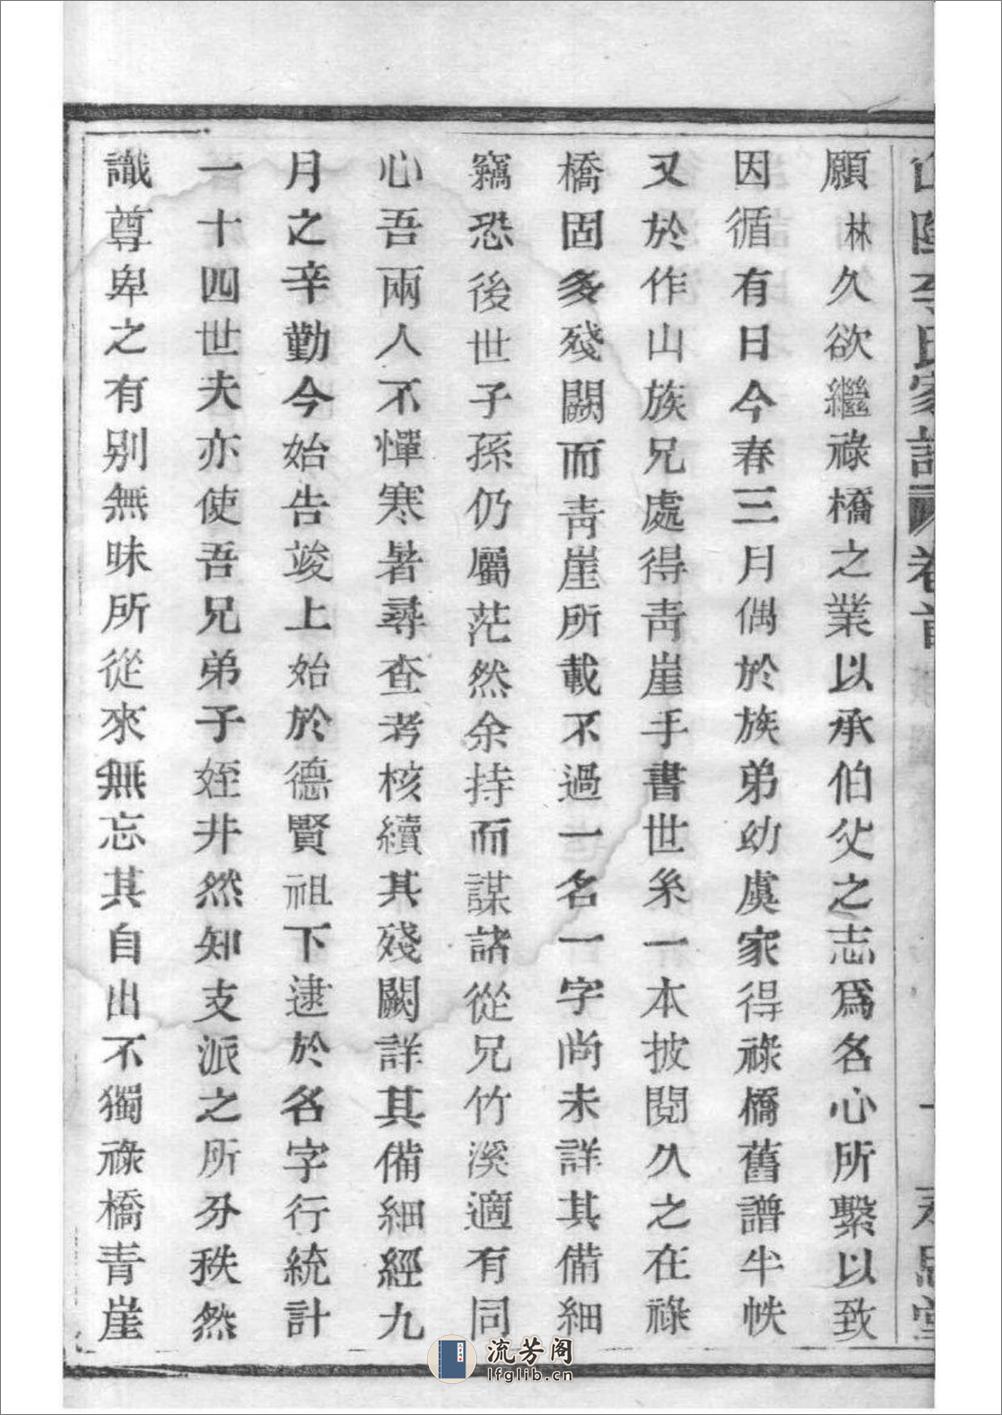 願林久欲繼祿橋之業以承伯父之志爲名心所繫以致
因循有日今春三月偶於族弟幼虞家得祿橋舊譜半帙
又於作山族兄處得靑崖手書世系一本披閱久之在祿
橋固多殘闕而靑崖所載不過一名一字尚未詳其備細
竊恐後世子孫仍屬茫然余持而謀諸從兄竹溪適有同
心吾兩人不憚寒暑尋查考核續其殘闕詳其備細經九
月之辛勤今始告竣上始於德賢祖下逮於名字行統計
一十四世夫亦使吾兄弟子姪井然知支派之所分秩然
識尊卑之有別無昧所從來無忘其自出不獨祿橋青崖
李氏家譜 卷首
流芳阁
lfglib.cn